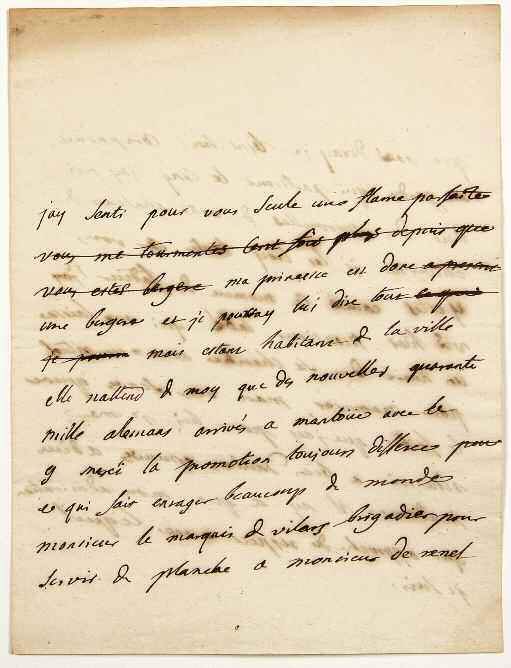 jay senti pour vous seule une flame parfaite
vous me tourmentes cent fois plus depuis que
vous estes bergere ma princesse est donc a present
une bergere et je pouray lui dire tout ce que
je pouvois mais estant habitant de la ville
elle nattend de moy que des nouvelles quarante
mille alemans arrivés a mantoüe avec le
la promotion toujours differee pour
ce qui fait enrager beaucoup de monde
monsieur le marquis de vilars brigadier pour
servir de planche a monsieur de renel